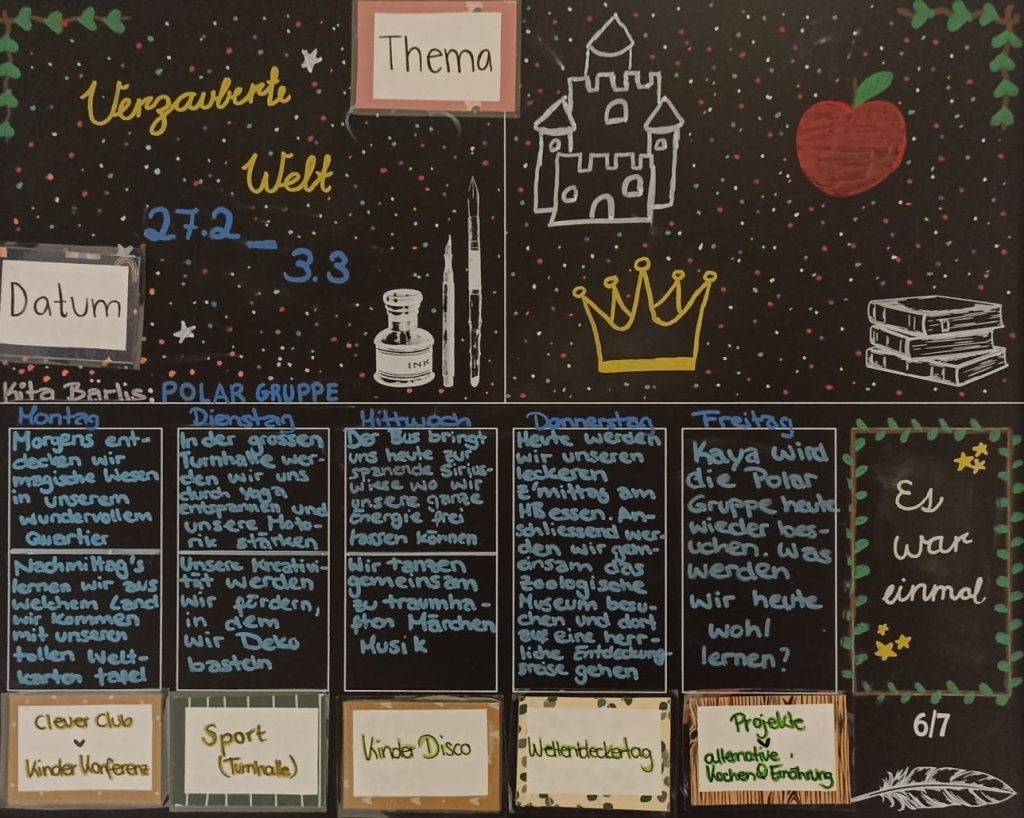 Thema
Verzauberte
Welt
27.2 –
3.3
Datum
INK
Kita Bärlis: POLAR GRUPPE
Montag
Morgens ent-
decken wir
magische Wesen
in unserem
wundervollem
Quartier
Nachmittag's
lernen wir aus
welchem Land
wir kommen
mit unseren
tollen Welt-
karten tafel
Clever Club
Kinder Konferenz
Dienstag
In der grossen
Turnhalle wer-
den wir uns
durch Yoga
entspannen und
unsere Moto-
rik stärken
Unsere Kreativi-
tät werden
wir fördern,
in dem
wir Deko
basteln
Sport
(Turnhalle)
Mittwoch
Der Bus bringt
uns heute zur
spanende Sirius-
wiese wo wir
unsere ganze
Energie frei
lassen können
Wir tanzen
gemeinsam
zu traumha-
ften Märchen
Musik
Kinder Disco
Donnerstag
Heute werden
wir unseren
leckeren
z'mittag am
HB essen. An-
schliessend wer-
den wir gem-
einsam das
zoologische
Museum besu-
chen und dort
auf eine herr-
liche Entdeckung-
sreise gehen
Weltentdeckertag
Freitag
Kaya wird
die Polar
Gruppe heute
wieder bes-
uchen. Was
werden
wir heute
wohl
lernen?
Projekte
alternative
Kochen & Ernährung
Es
war
einmal
6/7